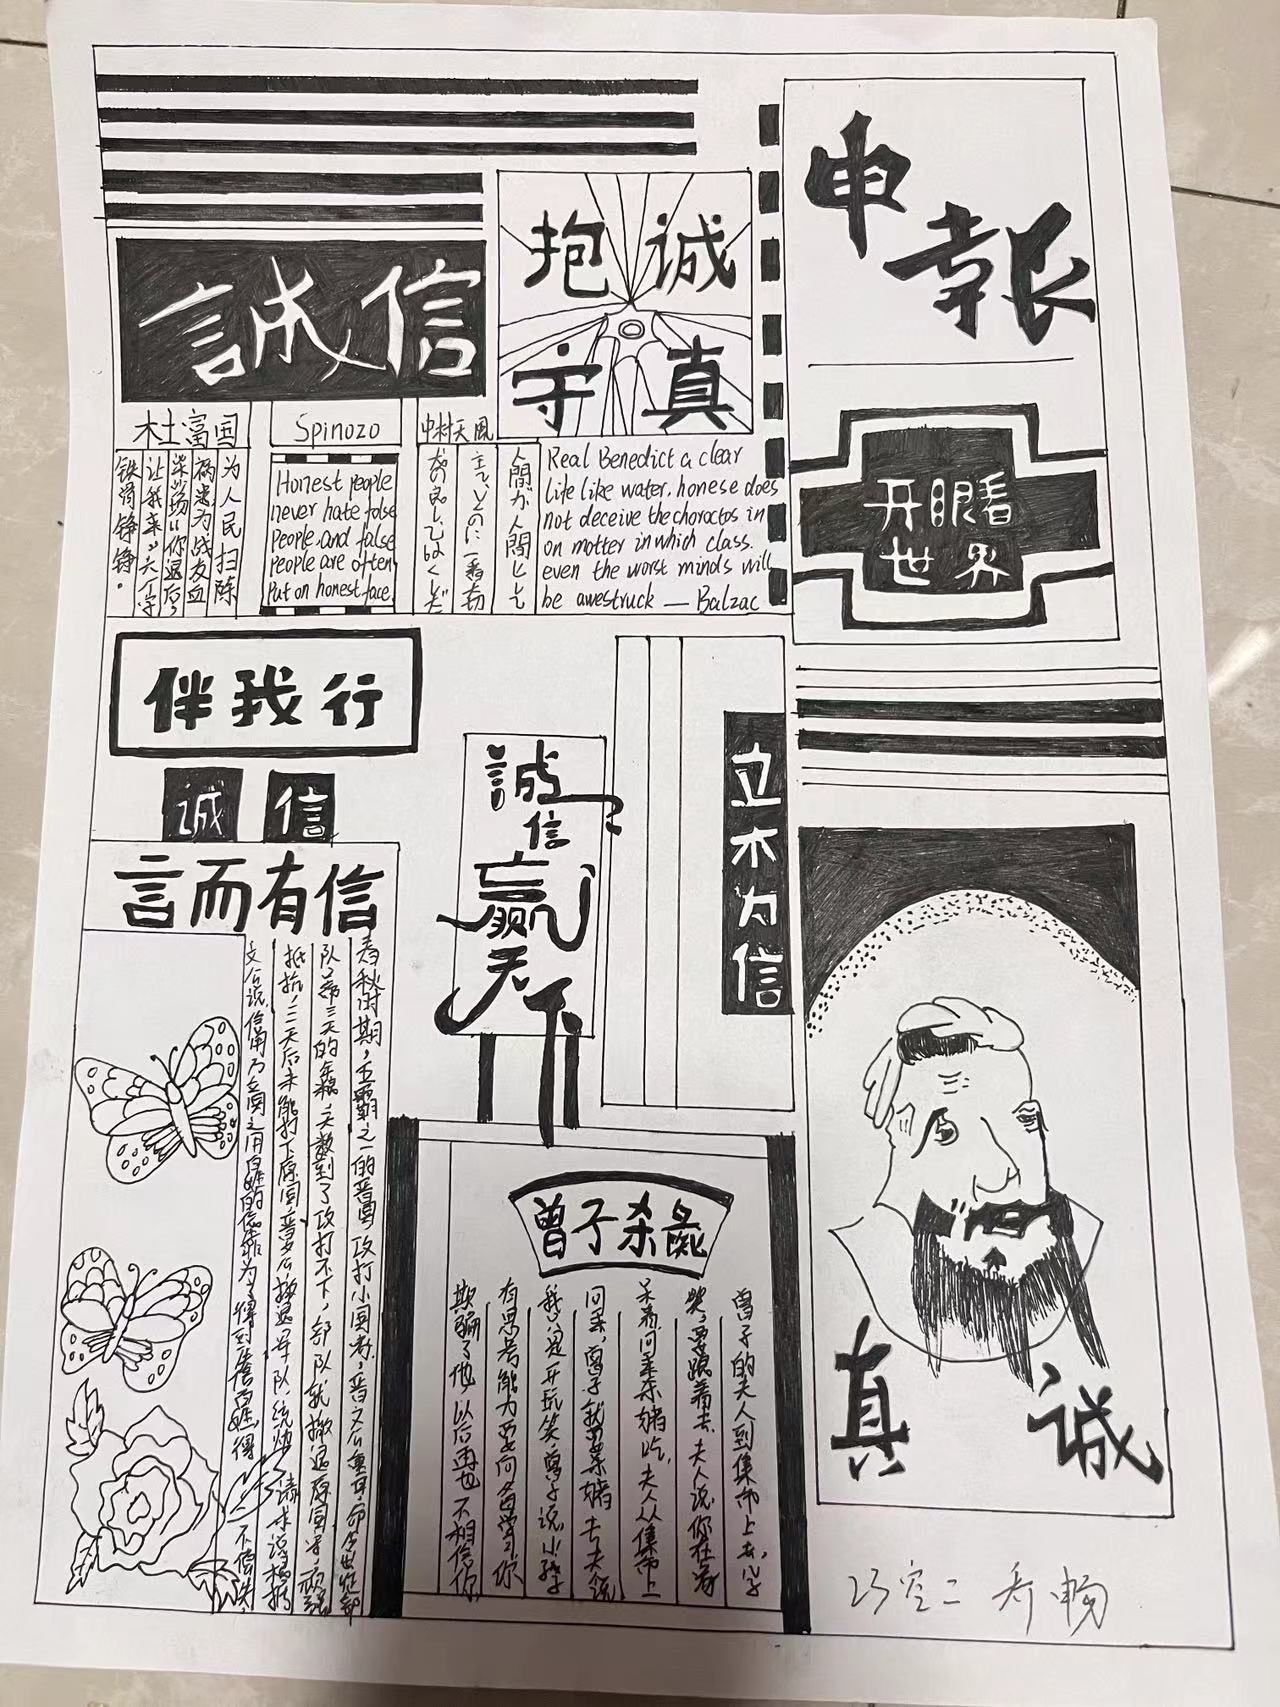 申報
开眼看
世界
誠信
抱诚
守真
杜富国
为人民扫除
祸患为战友血
染沙场“你退后
让我来”六个字
铁骨铮铮。
Spinozo
Honest people
never hate false
people,and false
people are often
put on honest face.
中村天風
人間が人間として
Real Benedict a clear
life like water. honese does
not deceive the choroctos in
on motter in which class.
even the worst minds will
be awestruck — Balzac
伴我行
诚信
言而有信
春秋时期,五霸之一的晋国攻打小国者,晋文公重耳,命令
队带三天的军粮,天数到了攻打不下,部队就撤退
抵抗,三天后未能打下原国,晋文公撤退军队,统帅
誠信
赢
天下
立木为信
曾子杀彘
曾子的夫人到集市上去,儿子
哭,要跟着去.夫人说你在家
呆着,回来杀猪吃,夫人从集市上
回来,曾子就要杀猪去,夫人说
我只是开玩笑,曾子说,小孩子
有思考能力要向爸爸学习,你
欺骗了他,以后再也不相信你
真诚